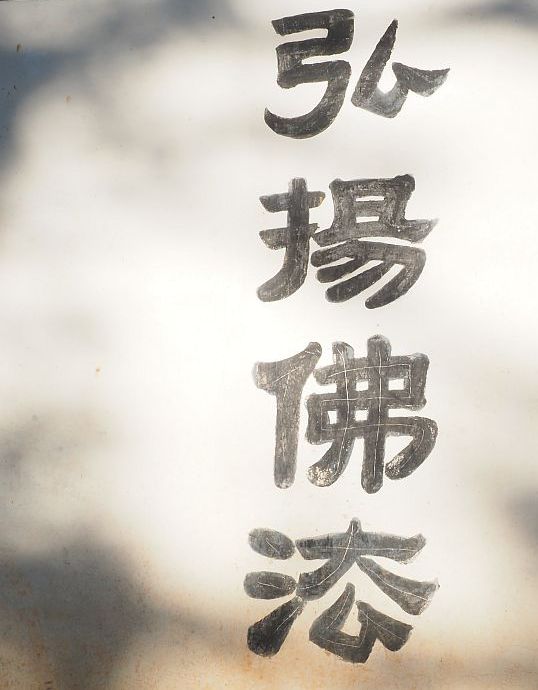 弘揚佛法